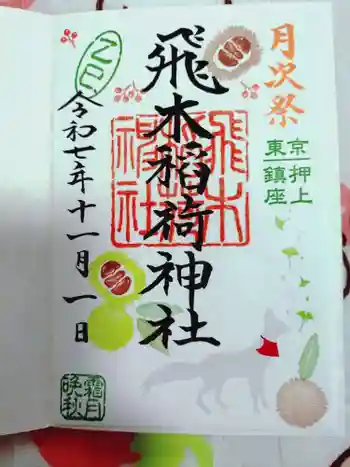 月次祭
東京押上鎮座
飛木稲荷神社
飛木稲荷神社
令和七年十一月一日
霜月
晩秋